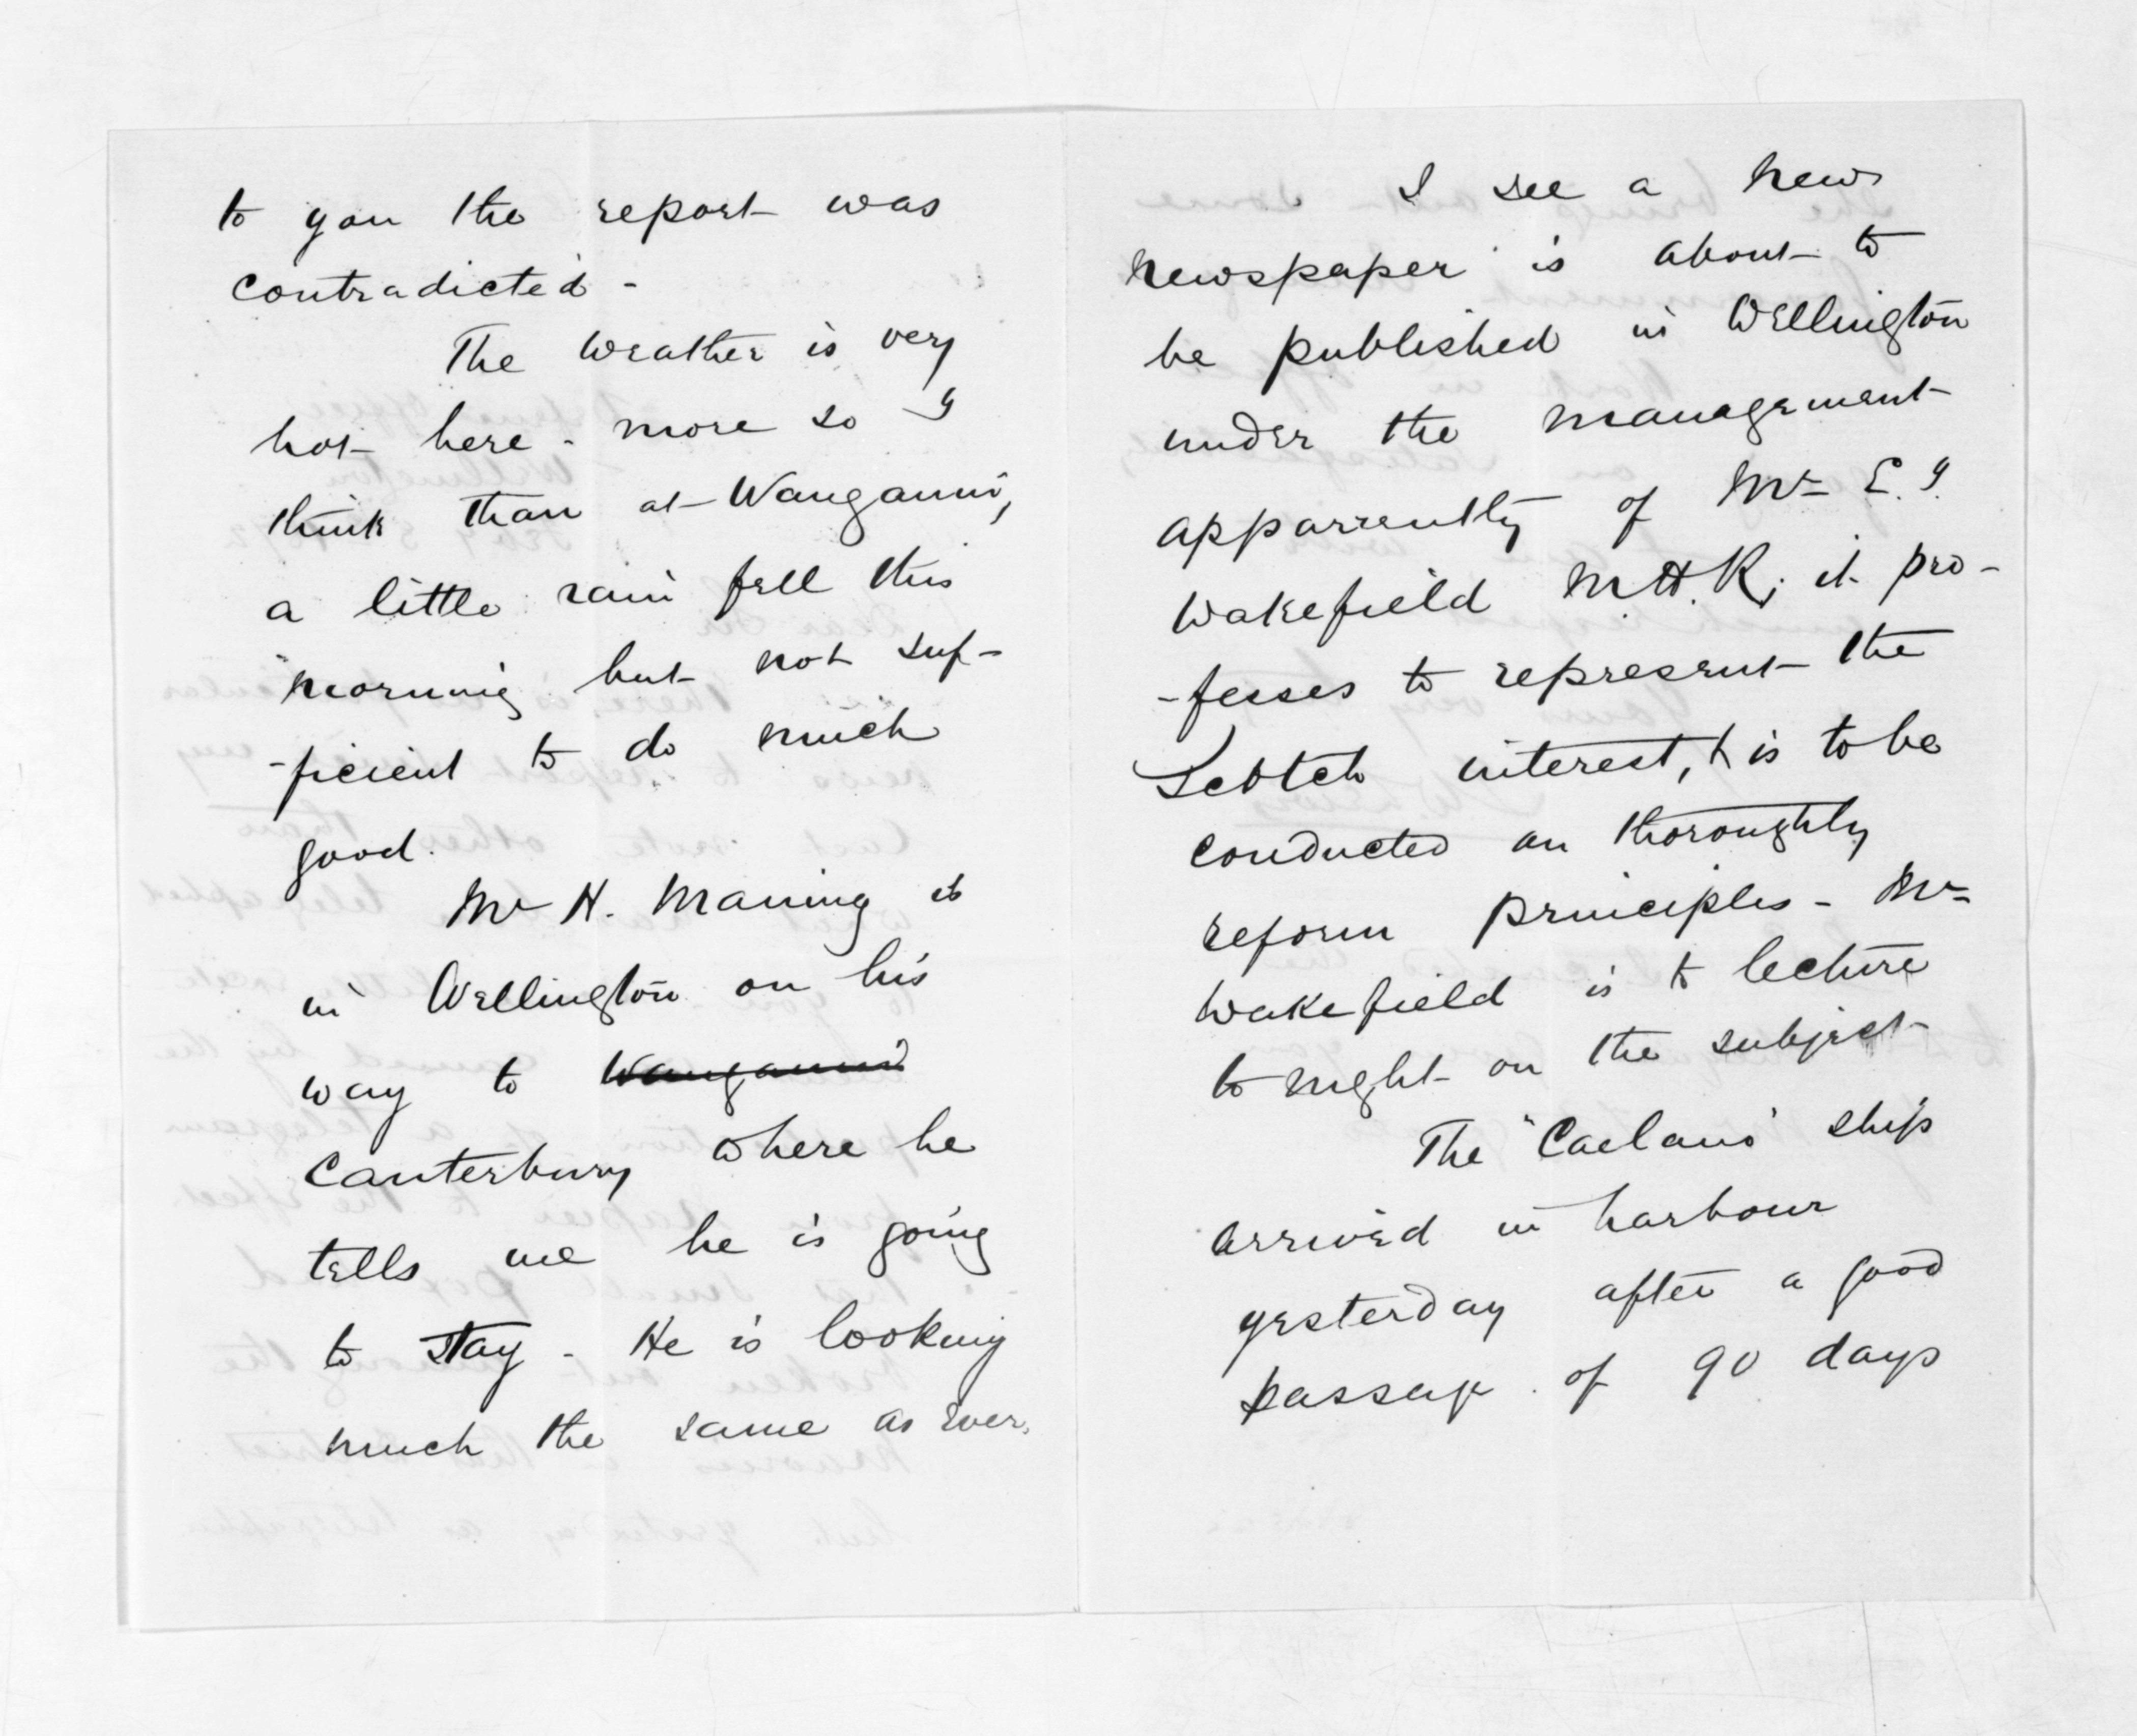 to you the report was
contradicted -
The weather is very
hot here - more so I
think than at Wanganui,
a little rain fell this
morning but not suf-
-ficient to do much
good.
Mr H. Maning is
in Wellington on his
way to Wanganui
Canterbury where he
tells me he is going
to stay - He is looking
much the same as ever.
I see a new
newspaper is about to
be published in Wellington
under the management
apparrently of Mr E. J.
Wakefield M.H.R; it pro-
-fesses to represent the
Scotch interest, & is to be
conducted on thoroughly
reform principles - Mr
Wakefield is to lecture
to night on the subject
The "Caelano" ship
arrived in harbour
yesterday after a good
passage of 90 days